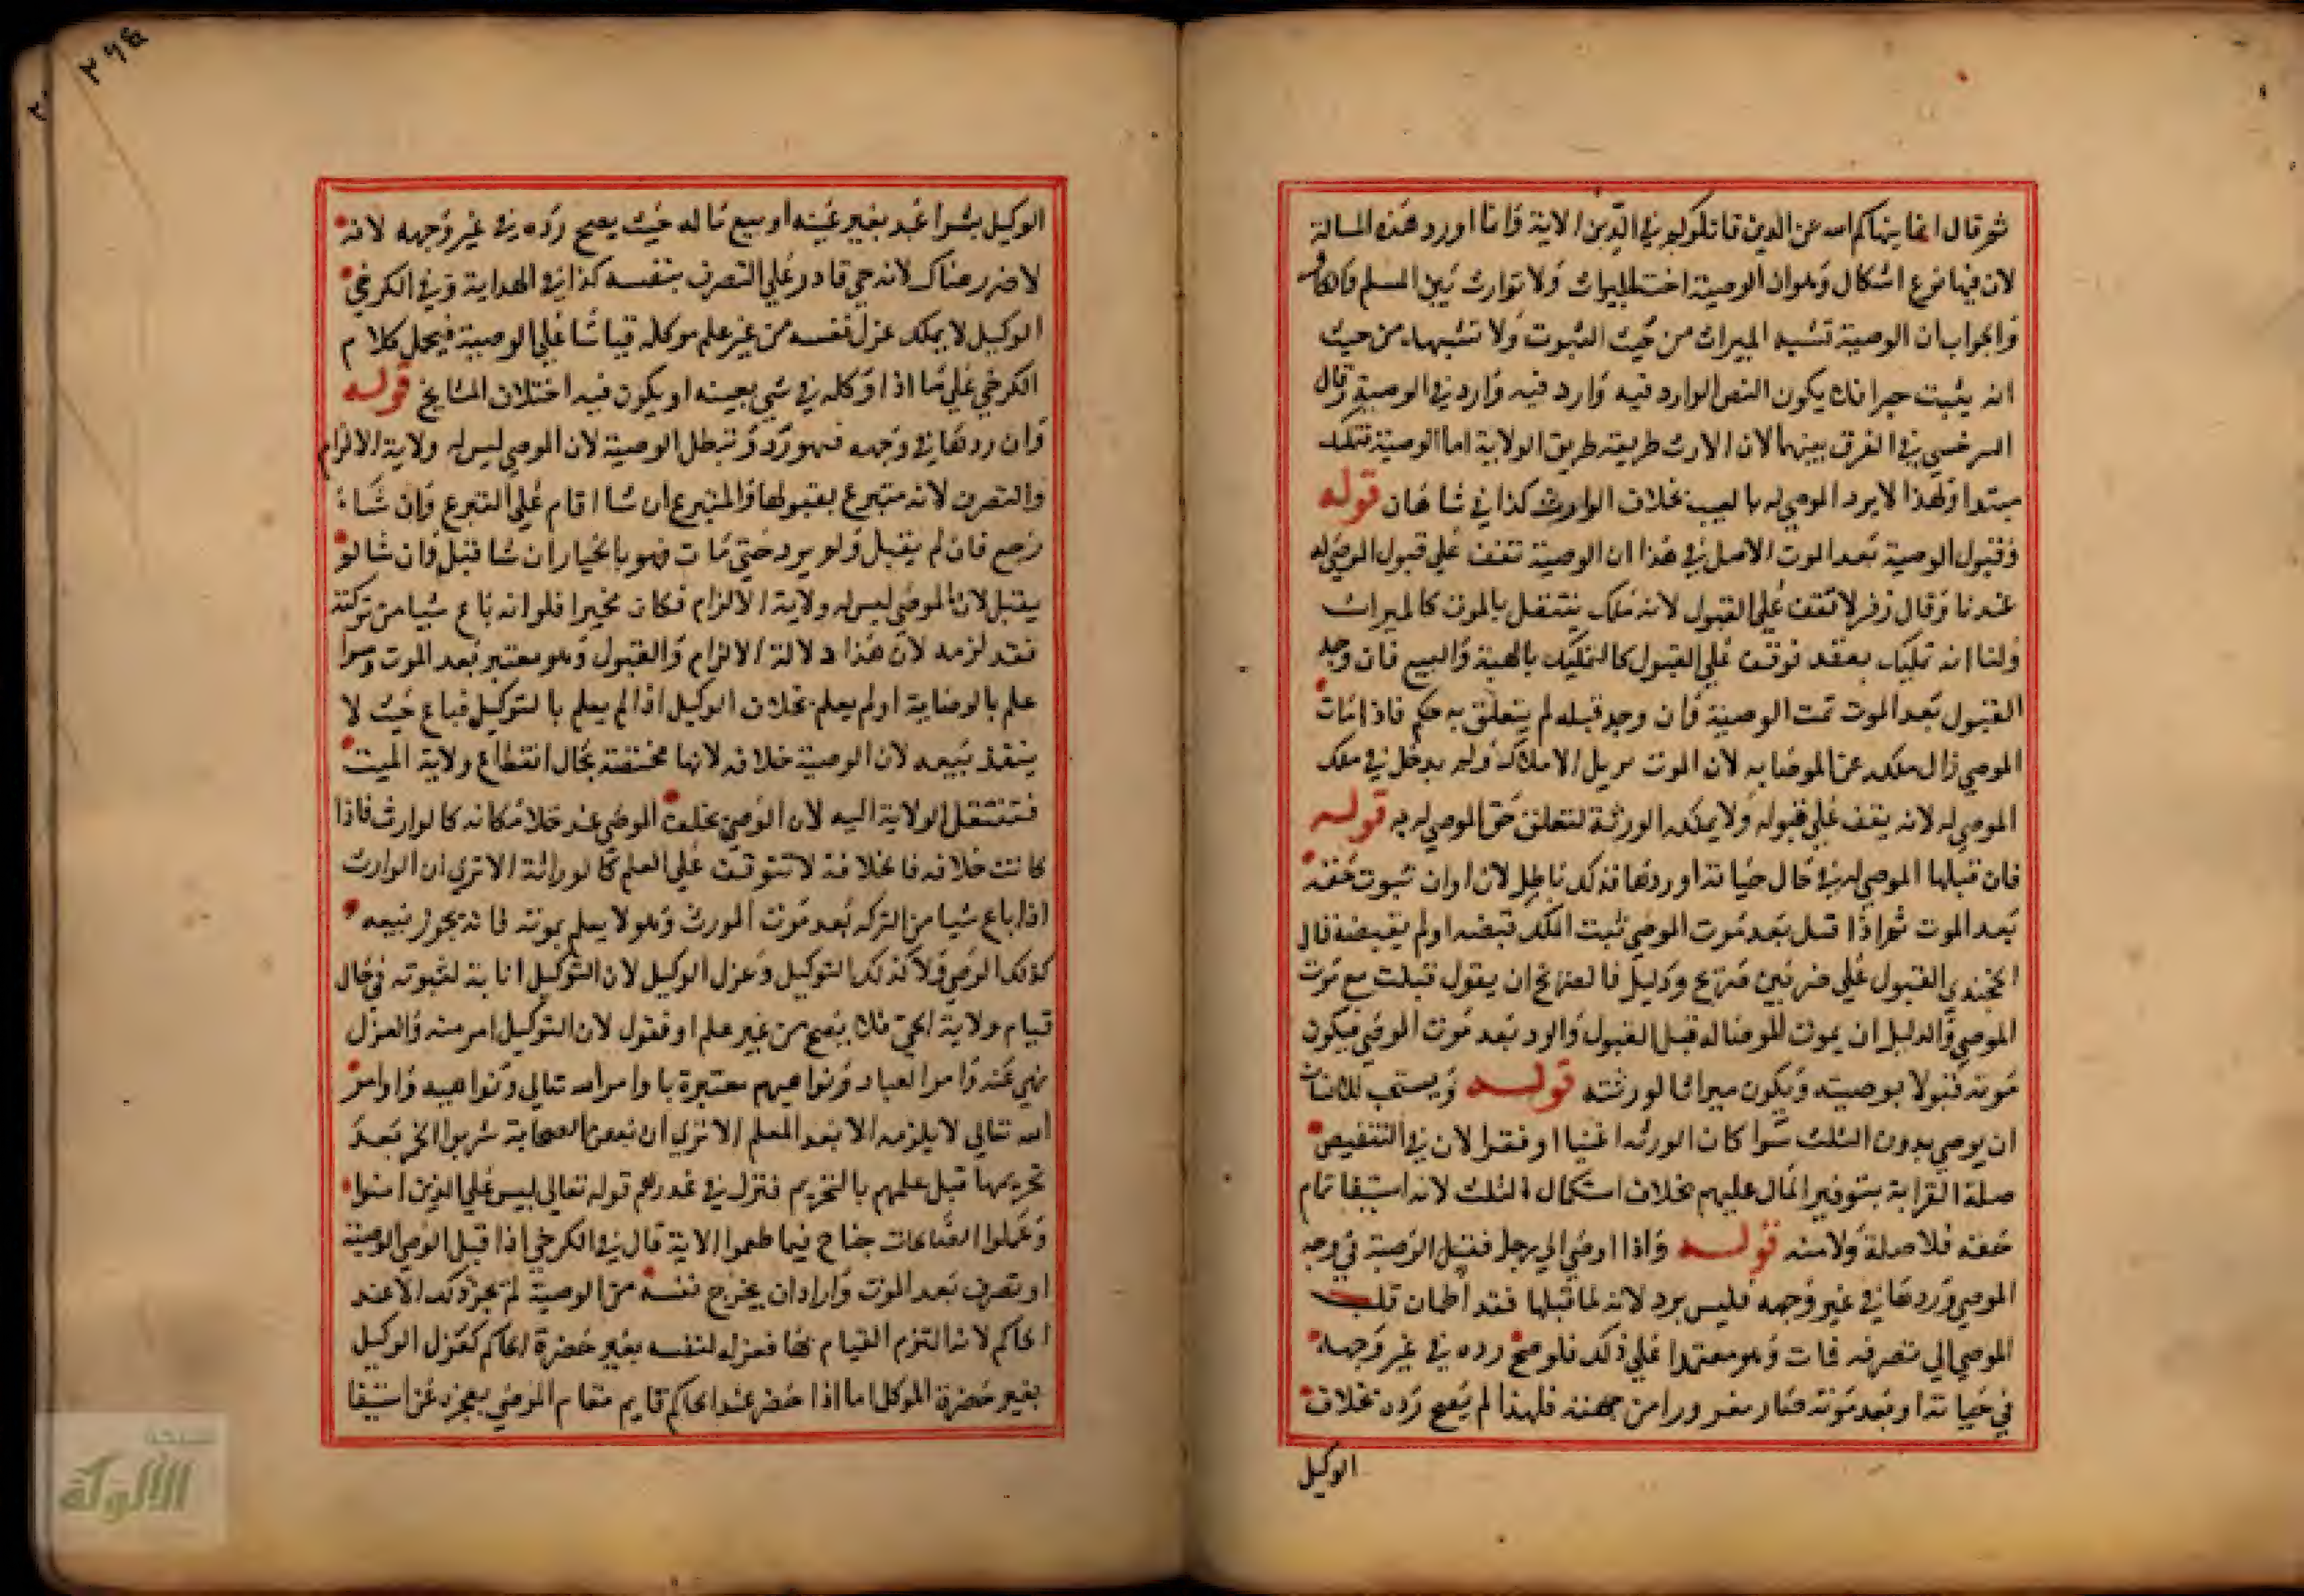 ثم قال انما ينهاكم الله عن الذين قاتلوكم في الدين الاية وانما اورد هذه المسالة
لان فيها نوع اشكال وهو ان الوصية اخت الميراث ولا توارث بين المسلم والكافر
والجواب ان الوصية تشبه الميراث من حيث الثبوت ولا تشبهه من حيث
انه يثبت جبرا فلا يكون النص الوارد فيه وارد فيه وارد في الوصية وقال
السرخسي في الفرق بينهما لان الارث طريقه طريق الولاية اما الوصية تمليك
مبتدا ولهذا لا يرد الموصي له بالعيب بخلاف الوارث كذا في شاهان قوله
وقبول الوصية بعد الموت الاصل في هذا ان الوصية تقف علي قبول الموصي له
عندنا وقال زفر لا تقف علي القبول لانه ملك ينتقل بالموت كالميراث
ولنا انه تمليك بعقد فوقف علي القبول كالتمليك بالهبة والبيع فان وجد
القبول بعد الموت تمت الوصية وان وجد قبله لم يتعلق به حكم فاذا مات
الموصي زال ملكه عن الموصا به لان الموت مزيل الاملاك ولم يدخل في ملك
الموصي له لانه يقف علي قبوله ولا يملكه الورثة لتعلق حق الموصي له به قوله
فان قبلها الموصي له في حال حياته او ردها فذلك باطل لان اوان ثبوت حقه
بعد الموت ثم اذا قبل بعد موت الموصي ثبت الملك قبضه او لم يقبضه قال
الخجندي القبول علي ضربين صريح ودليل فالصريح ان يقول قبلت مع موت
الموصي والدليل ان يموت الموصا له قبل القبول والرد بعد موت الموصي فيكون
موته قبولا بوصيته ويكون ميراثا لورثته قوله ويستحب للانسان
ان يوصي بدون الثلث سوا كان الورثه اغنيا او فقرا لان في التنقيص
صلة القرابة بتوفير المال عليهم بخلاف استكمال الثلث لانه استيفا تمام
حقه فلا صلة ولا منه قوله واذا اوصي الي رجل فقبل الوصية في وجه
الموصي وردها في غير وجهه فليس برد لانه لما قبلها فقد اطمان قلب
الموصي الي تصرفه فمات وهو معتمدا علي ذلك فلو صح رده في غير وجهه
في حياته او بعد موته صار مغرورا من جهته فلهذا لم يصح رده بخلاف
الوكيل
٢٩٤
الوكيل بشرا عبد بغير عينه او ببيع ماله حيث يصح رده في غير وجهه لانه
لا ضرر هناك لانه حي قادر علي التصرف بنفسه كذا في الهداية وفي الكرخي
الوكيل لا يملك عزل نفسه من غير علم موكله قياسا علي الوصية فيحمل كلام
الكرخي علي ما اذا وكله في شي بعينه او يكون فيه اختلاف المشايخ قوله
وان ردها في وجهه فهو رد وتبطل الوصية لان الموصي ليس له ولاية الالزام
والتصرف لانه متبرع بقبولها والمتبرع ان شا اقام علي التبرع وان شاء
رجع فان لم يقبل ولم يرد حتي مات فهو بالخيار ان شا قبل وان شا لم
يقبل لان الموصي ليس له ولاية الالزام فكان مخيرا فلو انه باع شيا من تركته
فقد لزمه لان هذا دلالة الالزام والقبول وهو معتبر بعد الموت وسوا
علم بالوصاية او لم يعلم بخلاف الوكيل اذا لم يعلم بالتوكيل فباع حيث لا
ينفذ بيعه لان الوصية خلافه لانها مختصة بحال انقطاع ولاية الميت
فتنتقل الولاية اليه لان الوصي يخلف الموصي عند خلا مكانه كالوارث فاذا
كانت خلافه فالخلافة لا تتوقف علي العلم كالوراثة الا تري ان الوارث
اذا باع شيا من التركه بعد موت المورث وهو لا يعلم بموته فانه يجوز بيعه
كذلك الوصي ولا كذلك التوكيل وعزل الوكيل لان التوكيل انابة لثبوته في حال
قيام ولاية الحي فلا يصح من غير علم او فنقول لان التوكيل امر منه والعزل
نهي عنه وامر العباد ونواهيهم معتبرة باوامر الله تعالي ونواهيه واوامر
الله تعالي لا يلزمه الا بعد العلم الا تري ان بعض الصحابة شربوا الخمر بعد
تحريمها قبل علمهم بالتحريم فنزل في عذرهم قوله تعالي ليس علي الذين امنوا
وعملوا الصالحات جناح فيما طعموا الاية قال في الكرخي اذا قبل الوصي الوصية
او تصرف بعد الموت واراد ان يخرج نفسه من الوصية لم يجز ذلك الا عند
الحاكم لانه التزم القيام بها فعزله لنفسه بغير حضرة الحاكم كعزل الوكيل
بغير حضرة الموكل اما اذا حضر عند الحاكم قايم مقام الموصي بعجزه عن استيفا
شبكة
الألوكة